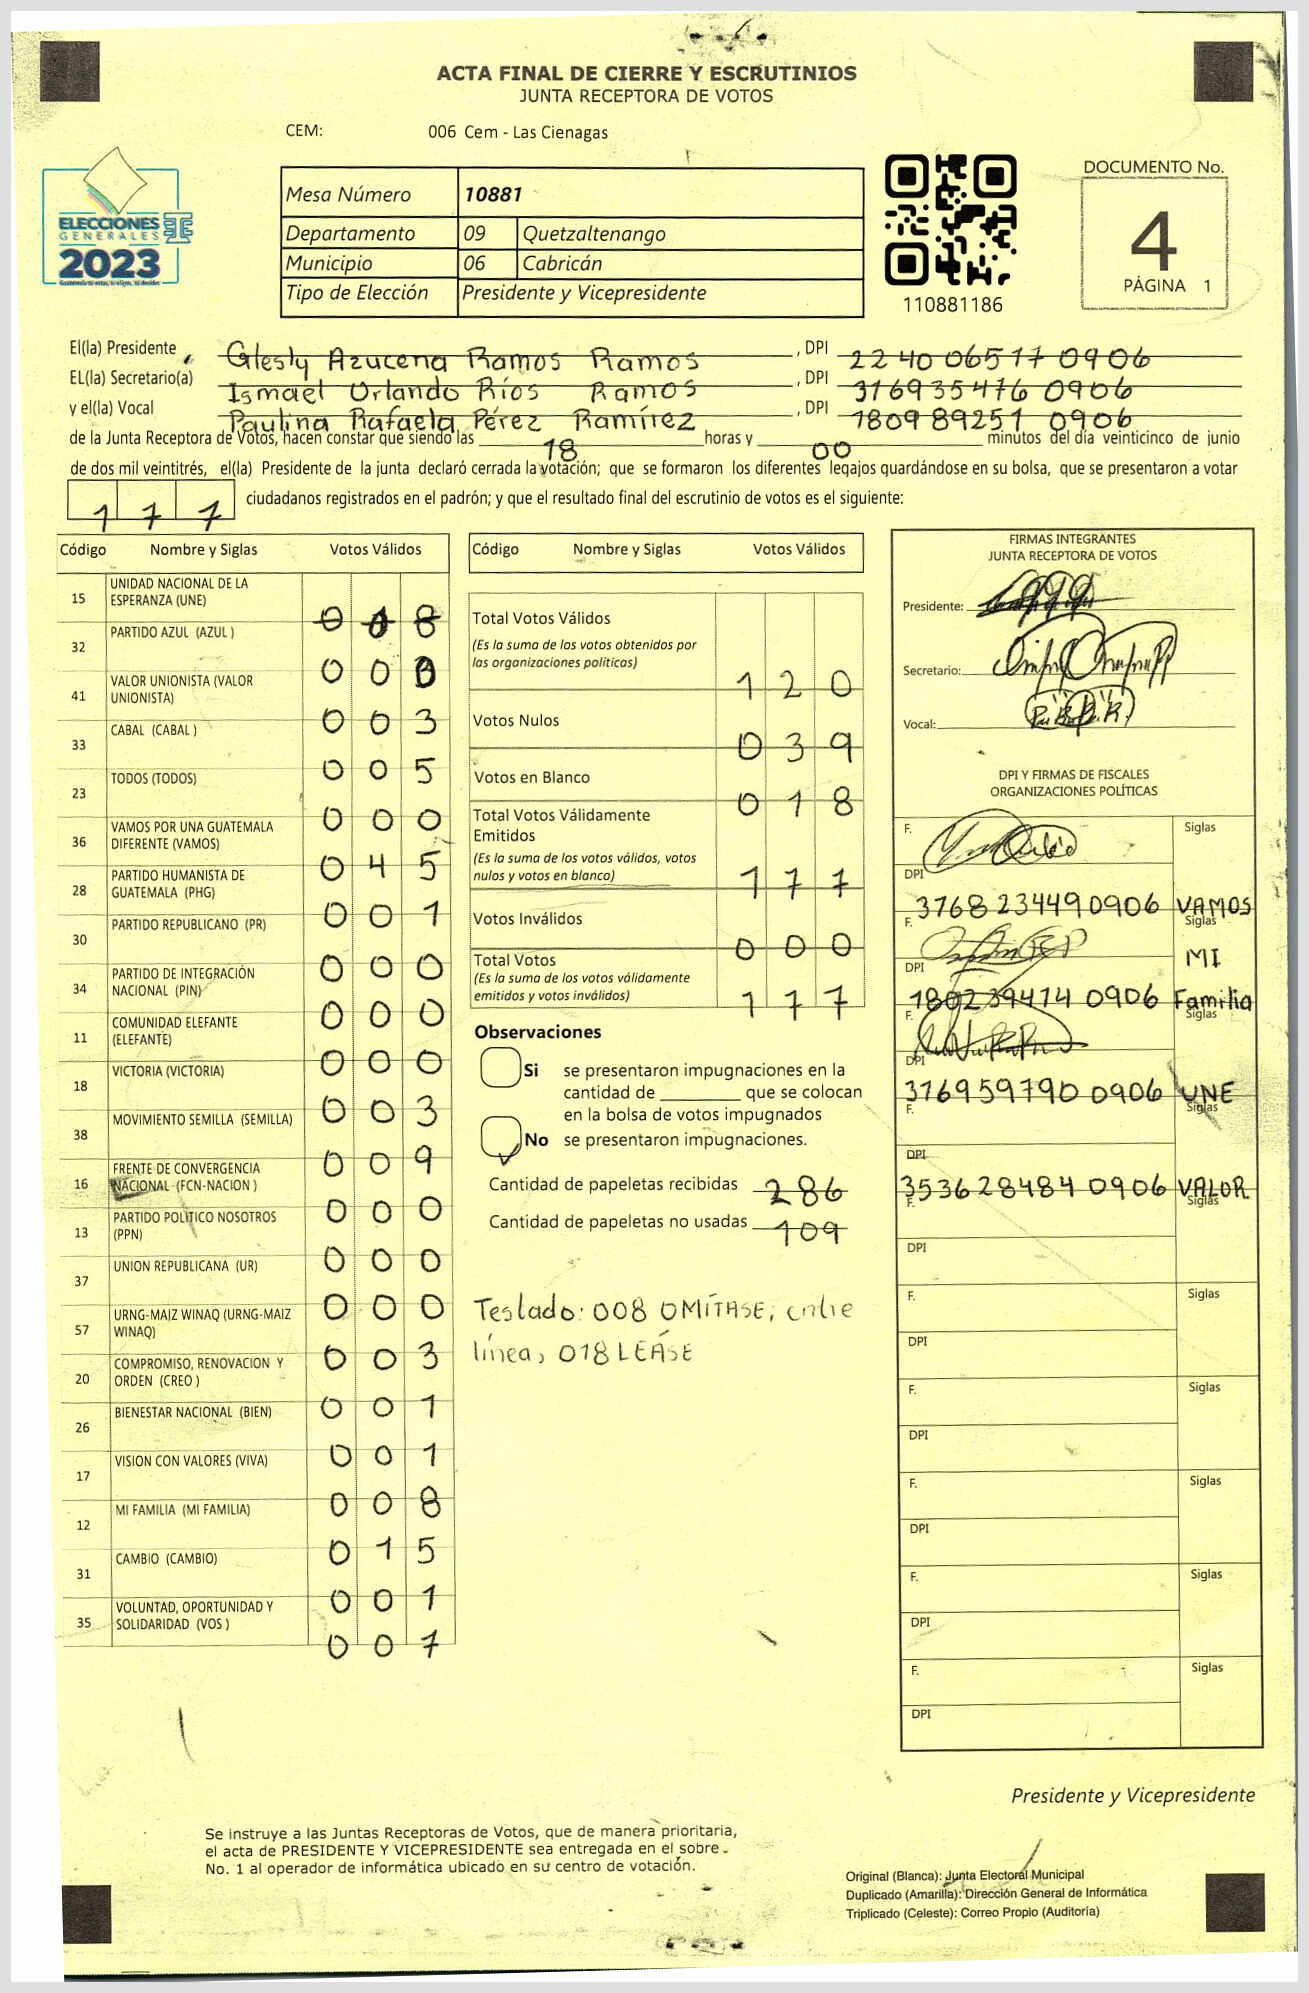 ACTA FINAL DE CIERRE Y ESCRUTINIOS
JUNTA RECEPTORA DE VOTOS
CEM: 006 Cem - Las Cienagas
ELECCIONES
GENERALES
2023
Mesa Número 10881
Departamento 09 Quetzaltenango
Municipio 06 Cabricán
Tipo de Elección Presidente y Vicepresidente
110881186
DOCUMENTO No.
4
PÁGINA 1
El(la) Presidente Glesly Azucena Ramos Ramos, DPI 2240 06517 0906
EL(la) Secretario(a) Ismael Orlando Ríos Ramos, DPI 316935476 0906
y el(la) Vocal Paulina Rafaela Pérez Ramírez, DPI 1809 89251 0906
de la Junta Receptora de Votos, hacen constar que siendo las 18 horas y 00 minutos del día veinticinco de junio
de dos mil veintitrés, el(la) Presidente de la junta declaró cerrada la votación; que se formaron los diferentes legajos guardándose en su bolsa, que se presentaron a votar
177 ciudadanos registrados en el padrón; y que el resultado final del escrutinio de votos es el siguiente:
Código Nombre y Siglas Votos Válidos
15 UNIDAD NACIONAL DE LA ESPERANZA (UNE) 0 1 8
32 PARTIDO AZUL (AZUL ) 0 0 0
41 VALOR UNIONISTA (VALOR UNIONISTA) 0 0 3
33 CABAL (CABAL ) 0 0 5
23 TODOS (TODOS) 0 0 0
36 VAMOS POR UNA GUATEMALA DIFERENTE (VAMOS) 0 4 5
28 PARTIDO HUMANISTA DE GUATEMALA (PHG) 0 0 1
30 PARTIDO REPUBLICANO (PR) 0 0 0
34 PARTIDO DE INTEGRACIÓN NACIONAL (PIN) 0 0 0
11 COMUNIDAD ELEFANTE (ELEFANTE) 0 0 0
18 VICTORIA (VICTORIA) 0 0 3
38 MOVIMIENTO SEMILLA (SEMILLA) 0 0 9
16 FRENTE DE CONVERGENCIA NACIONAL (FCN-NACION ) 0 0 0
13 PARTIDO POLITICO NOSOTROS (PPN) 0 0 0
37 UNION REPUBLICANA (UR) 0 0 0
57 URNG-MAIZ WINAQ (URNG-MAIZ WINAQ) 0 0 3
20 COMPROMISO, RENOVACION Y ORDEN (CREO ) 0 0 1
26 BIENESTAR NACIONAL (BIEN) 0 0 1
17 VISION CON VALORES (VIVA) 0 0 8
12 MI FAMILIA (MI FAMILIA) 0 1 5
31 CAMBIO (CAMBIO) 0 0 1
35 VOLUNTAD, OPORTUNIDAD Y SOLIDARIDAD (VOS ) 0 0 7
Código Nombre y Siglas Votos Válidos
Total Votos Válidos
(Es la suma de los votos obtenidos por
las organizaciones políticas) 1 2 0
Votos Nulos 0 3 9
Votos en Blanco 0 1 8
Total Votos Válidamente
Emitidos
(Es la suma de los votos válidos, votos
nulos y votos en blanco) 1 7 7
Votos Inválidos 0 0 0
Total Votos
(Es la suma de los votos válidamente
emitidos y votos inválidos) 1 7 7
Observaciones
Si se presentaron impugnaciones en la
cantidad de ________ que se colocan
en la bolsa de votos impugnados
No se presentaron impugnaciones.
Cantidad de papeletas recibidas 286
Cantidad de papeletas no usadas 109
Testado: 008 OMÍTASE; entre
línea, 018 LEASE
FIRMAS INTEGRANTES
JUNTA RECEPTORA DE VOTOS
Presidente:
Secretario:
Vocal:
DPI Y FIRMAS DE FISCALES
ORGANIZACIONES POLÍTICAS
F. Siglas
DPI 3768 23449 0906 VAMOS
F. Siglas
DPI 180239414 0906 MI Familia
F. Siglas
DPI 3769 59790 0906 UNE
F. Siglas
DPI 3536 28484 0906 VALOR
F. Siglas
DPI
F. Siglas
DPI
F. Siglas
DPI
F. Siglas
DPI
F. Siglas
DPI
F. Siglas
DPI
Presidente y Vicepresidente
Se instruye a las Juntas Receptoras de Votos, que de manera prioritaria,
el acta de PRESIDENTE Y VICEPRESIDENTE sea entregada en el sobre
No. 1 al operador de informática ubicado en su centro de votación.
Original (Blanca): Junta Electoral Municipal
Duplicado (Amarilla): Dirección General de Informática
Triplicado (Celeste): Correo Propio (Auditoría)